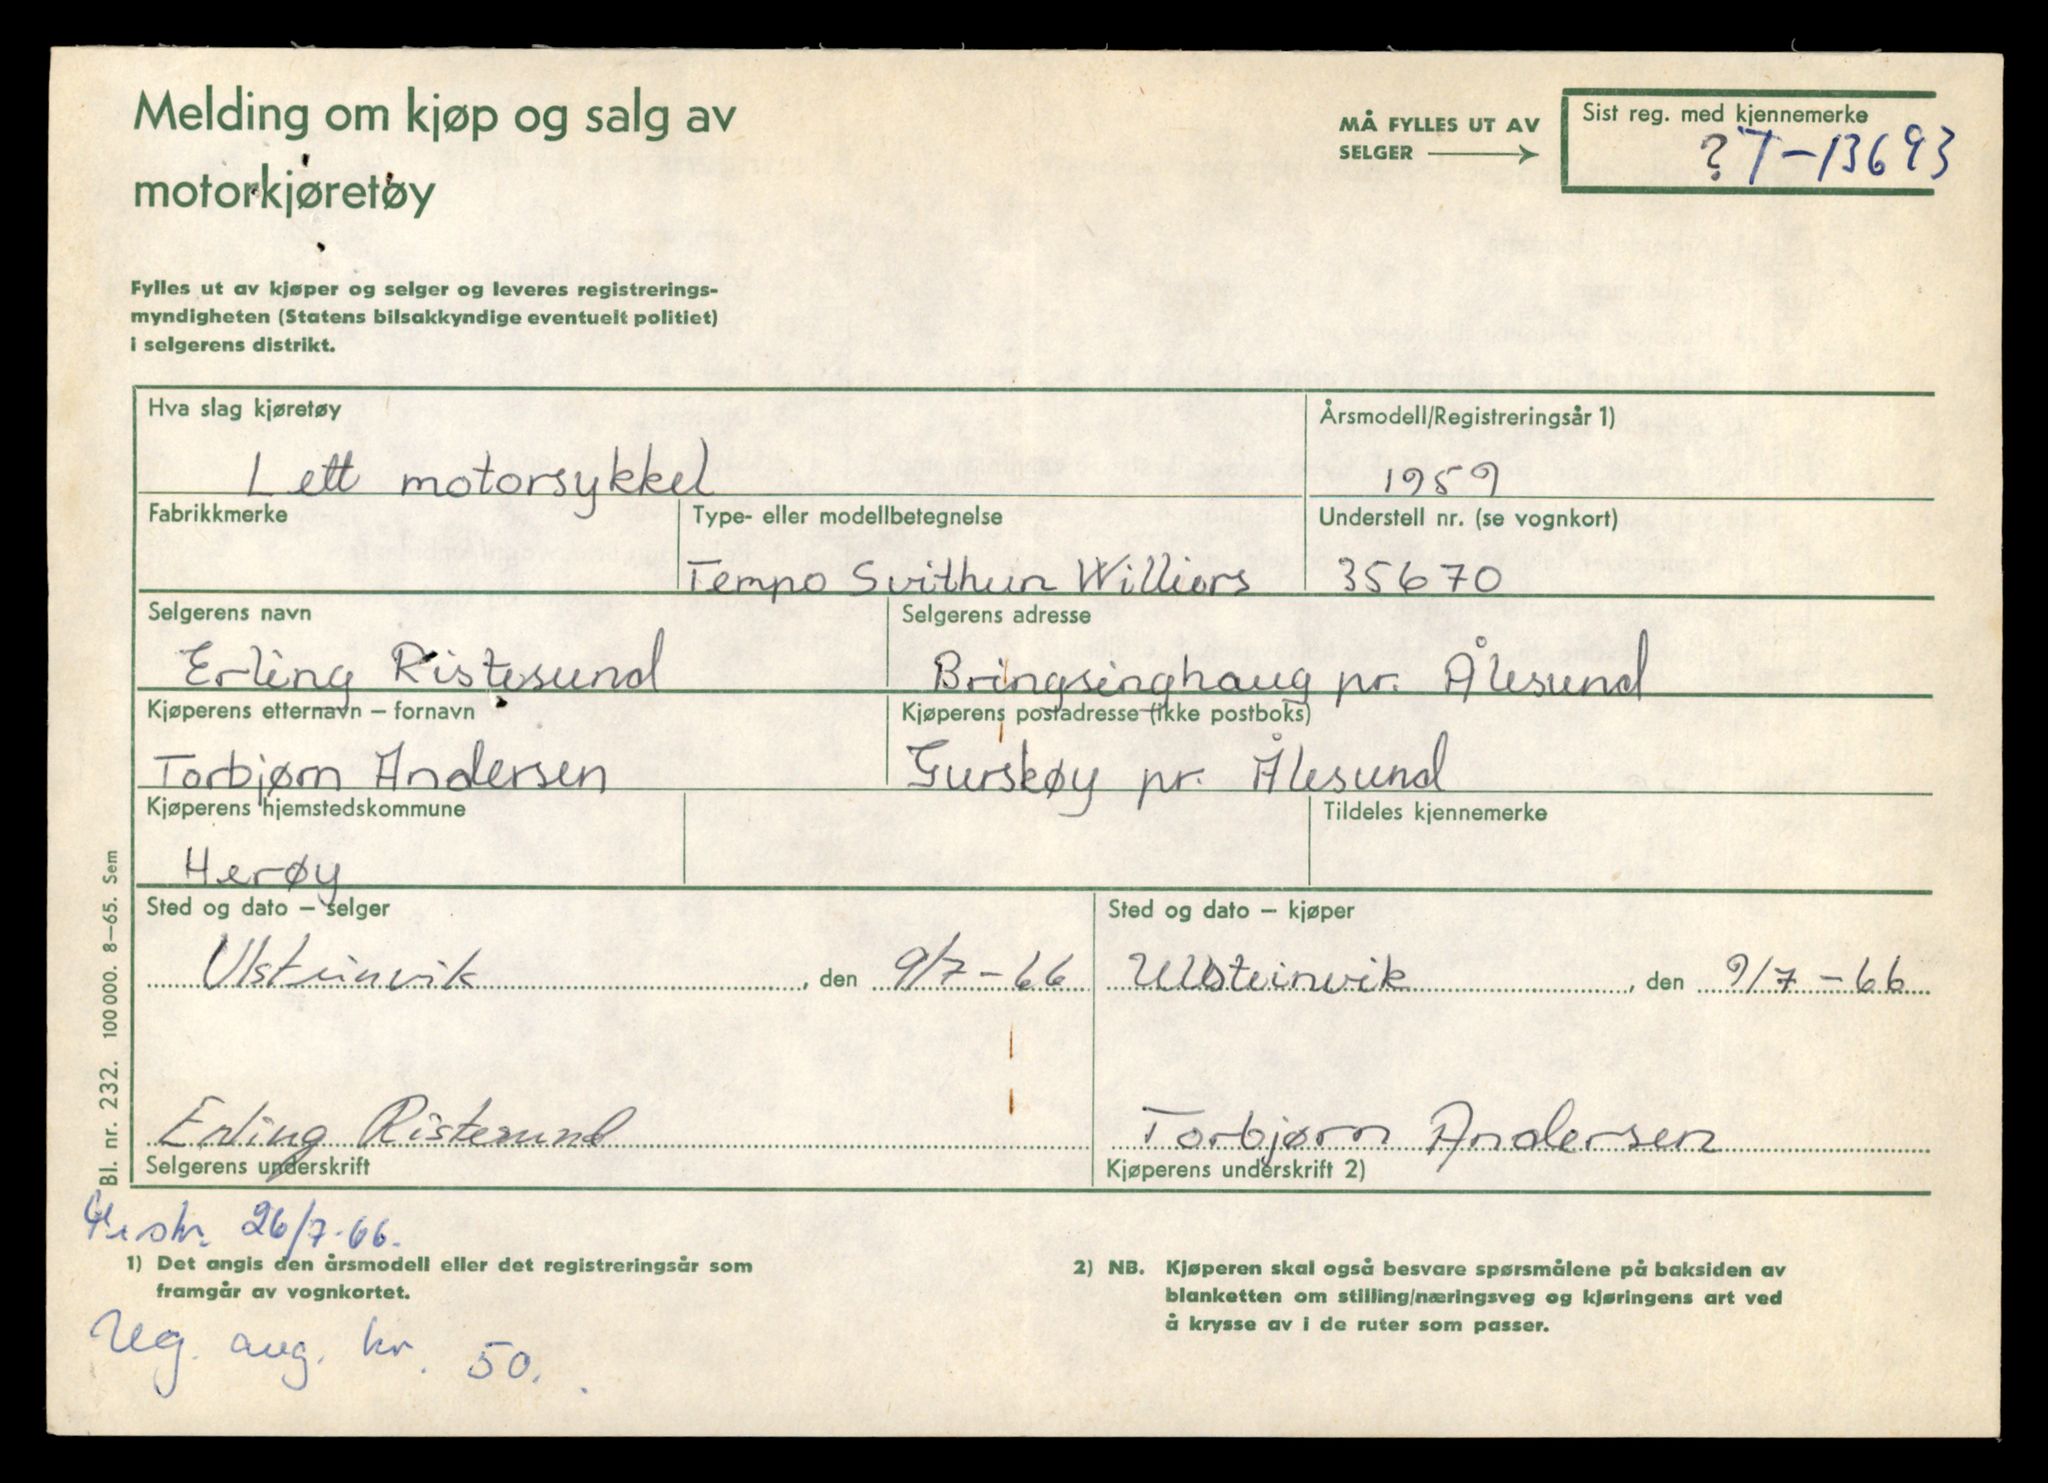 Melding om kjøp og salg av
motorkjøretøy
MÅ FYLLES UT AV
SELGER
Sist reg. med kjennemerke
? T-13693
Fylles ut av kjøper og selger og leveres registrerings-
myndigheten (Statens bilsakkyndige eventuelt politiet)
i selgerens distrikt.
Hva slag kjøretøy
Årsmodell/Registreringsår 1)
Lett motorsykkel
1959
Fabrikkmerke
Type- eller modellbetegnelse
Understell nr. (se vognkort)
Tempo Svithun Williers
35670
Selgerens navn
Selgerens adresse
Erling Ristesund
Bringsinghaug pr. Ålesund
Kjøperens etternavn – fornavn
Kjøperens postadresse (ikke postboks)
Torbjørn Andersen
Gurskøy pr. Ålesund
Kjøperens hjemstedskommune
Tildeles kjennemerke
Herøy
Sted og dato – selger
Sted og dato – kjøper
Ulsteinvik, den 9/7-66
Ulsteinvik, den 9/7-66
Erling Ristesund
Torbjørn Andersen
Selgerens underskrift
Kjøperens underskrift 2)
Bl. nr. 232. 100000. 8–65. Sem
26/7-66.
1) Det angis den årsmodell eller det registreringsår som
framgår av vognkortet.
2) NB. Kjøperen skal også besvare spørsmålene på baksiden av
blanketten om stilling/næringsveg og kjøringens art ved
å krysse av i de ruter som passer.
Reg. avg. kr. 50.